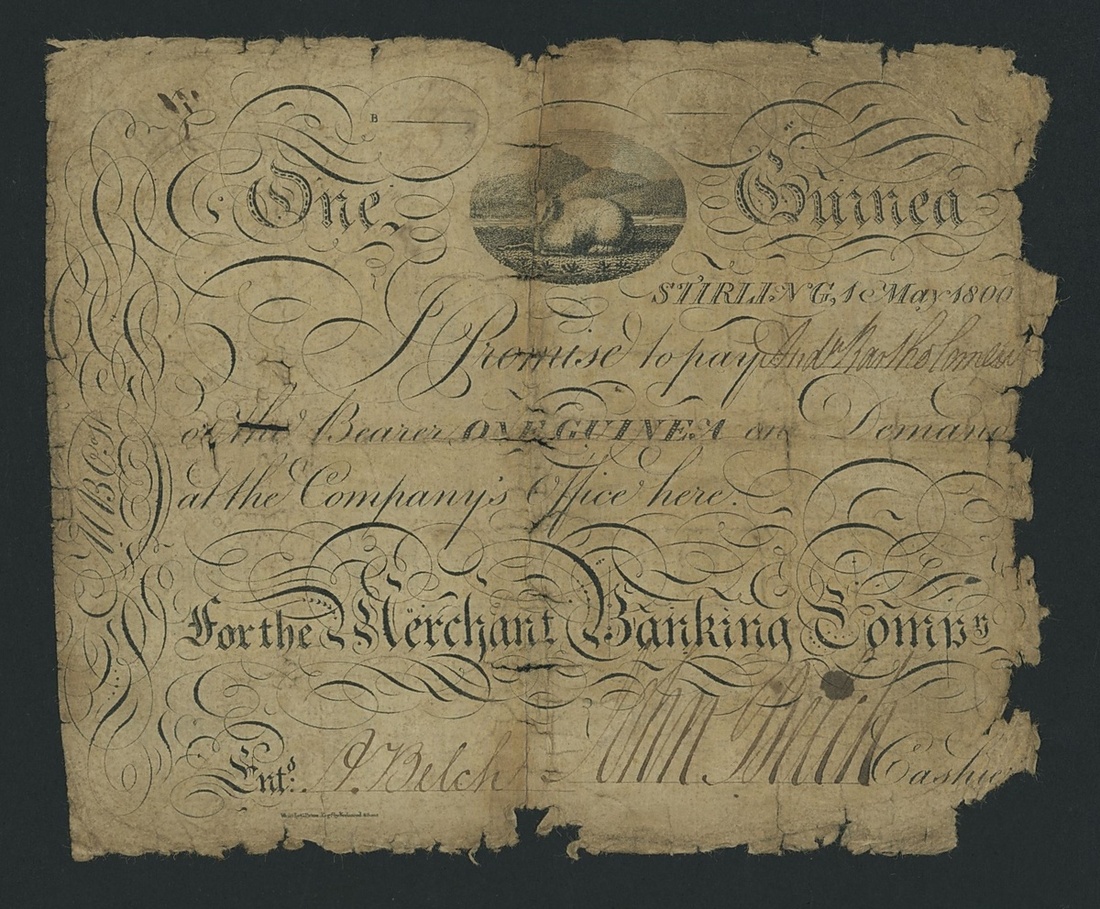 B
One Guinea
STIRLING, 1 May 1800
I Promise to pay And.w Bartholomew
or the Bearer ONE GUINEA on Demand
at the Company's Office here.
M B Co.
For the Merchant Banking Compy
Entd. A. Belch John Belch Cashier